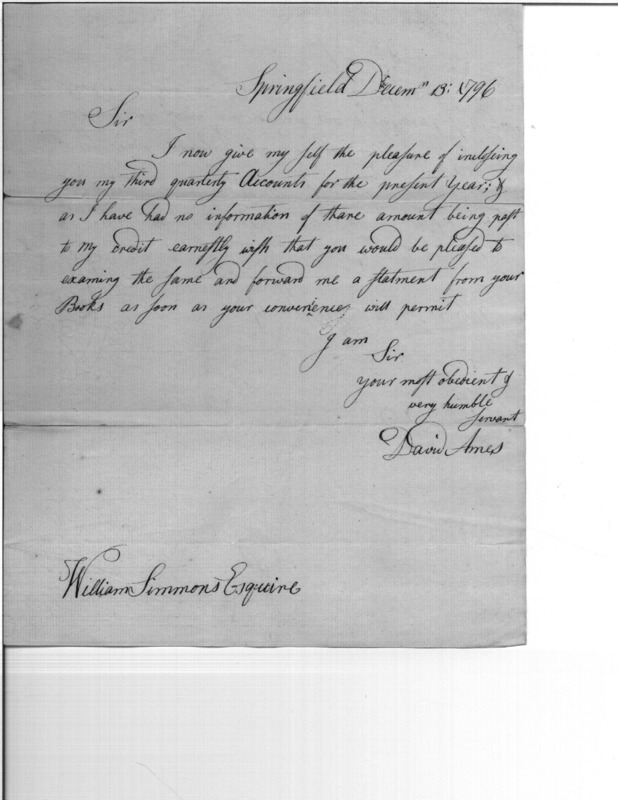 Springfield Decemr 13: 1796
Sir
I now give my self the pleasure of inclosing
you my third quarterly Accounts for the present Year; &
as I have had no information of thare amount being past
to my credit earnestly wish that you would be pleased to
examing the same and forward me a statment from your
Books as soon as your convenience will permit
I am
Sir
your most obedient &
very humble
servant
David Ames
William Simmons Esquire